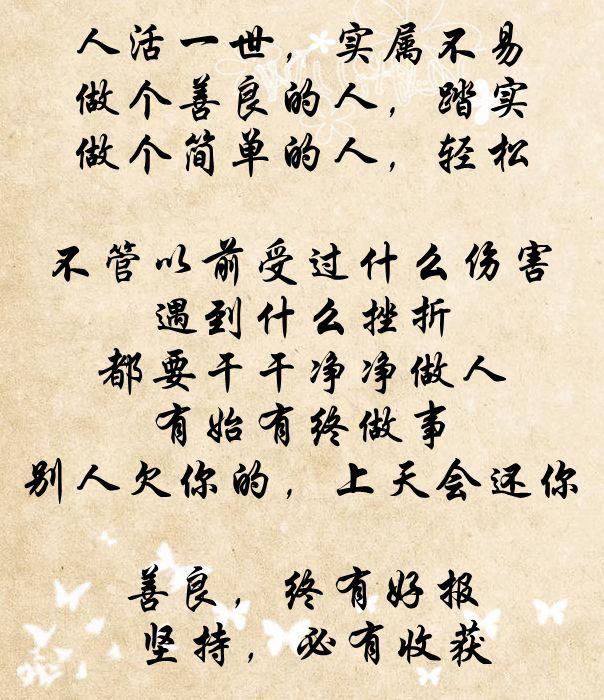 人活一世，实属不易
做个善良的人，踏实
做个简单的人，轻松
不管以前受过什么伤害
遇到什么挫折
都要干干净净做人
有始有终做事
别人欠你的，上天会还你
善良，终有好报
坚持，必有收获